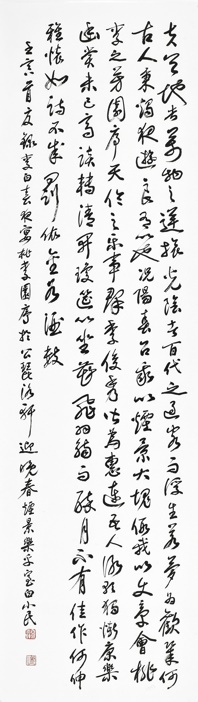 夫天地者萬物之逆旅光陰者百代之過客而浮生若夢為歡幾何
古人秉燭夜遊良有以也況陽春召我以煙景大塊假我以文章會桃
李之芳園序天倫之樂事群季俊秀皆為惠連吾人詠歌獨慚康樂
幽賞未已高談轉清開瓊筵以坐花飛羽觴而醉月不有佳作何伸
雅懷如詩不成罰依金谷酒數
壬寅錄李白春夜宴桃李園序於軒迎晚春煙景樂乎室白小民